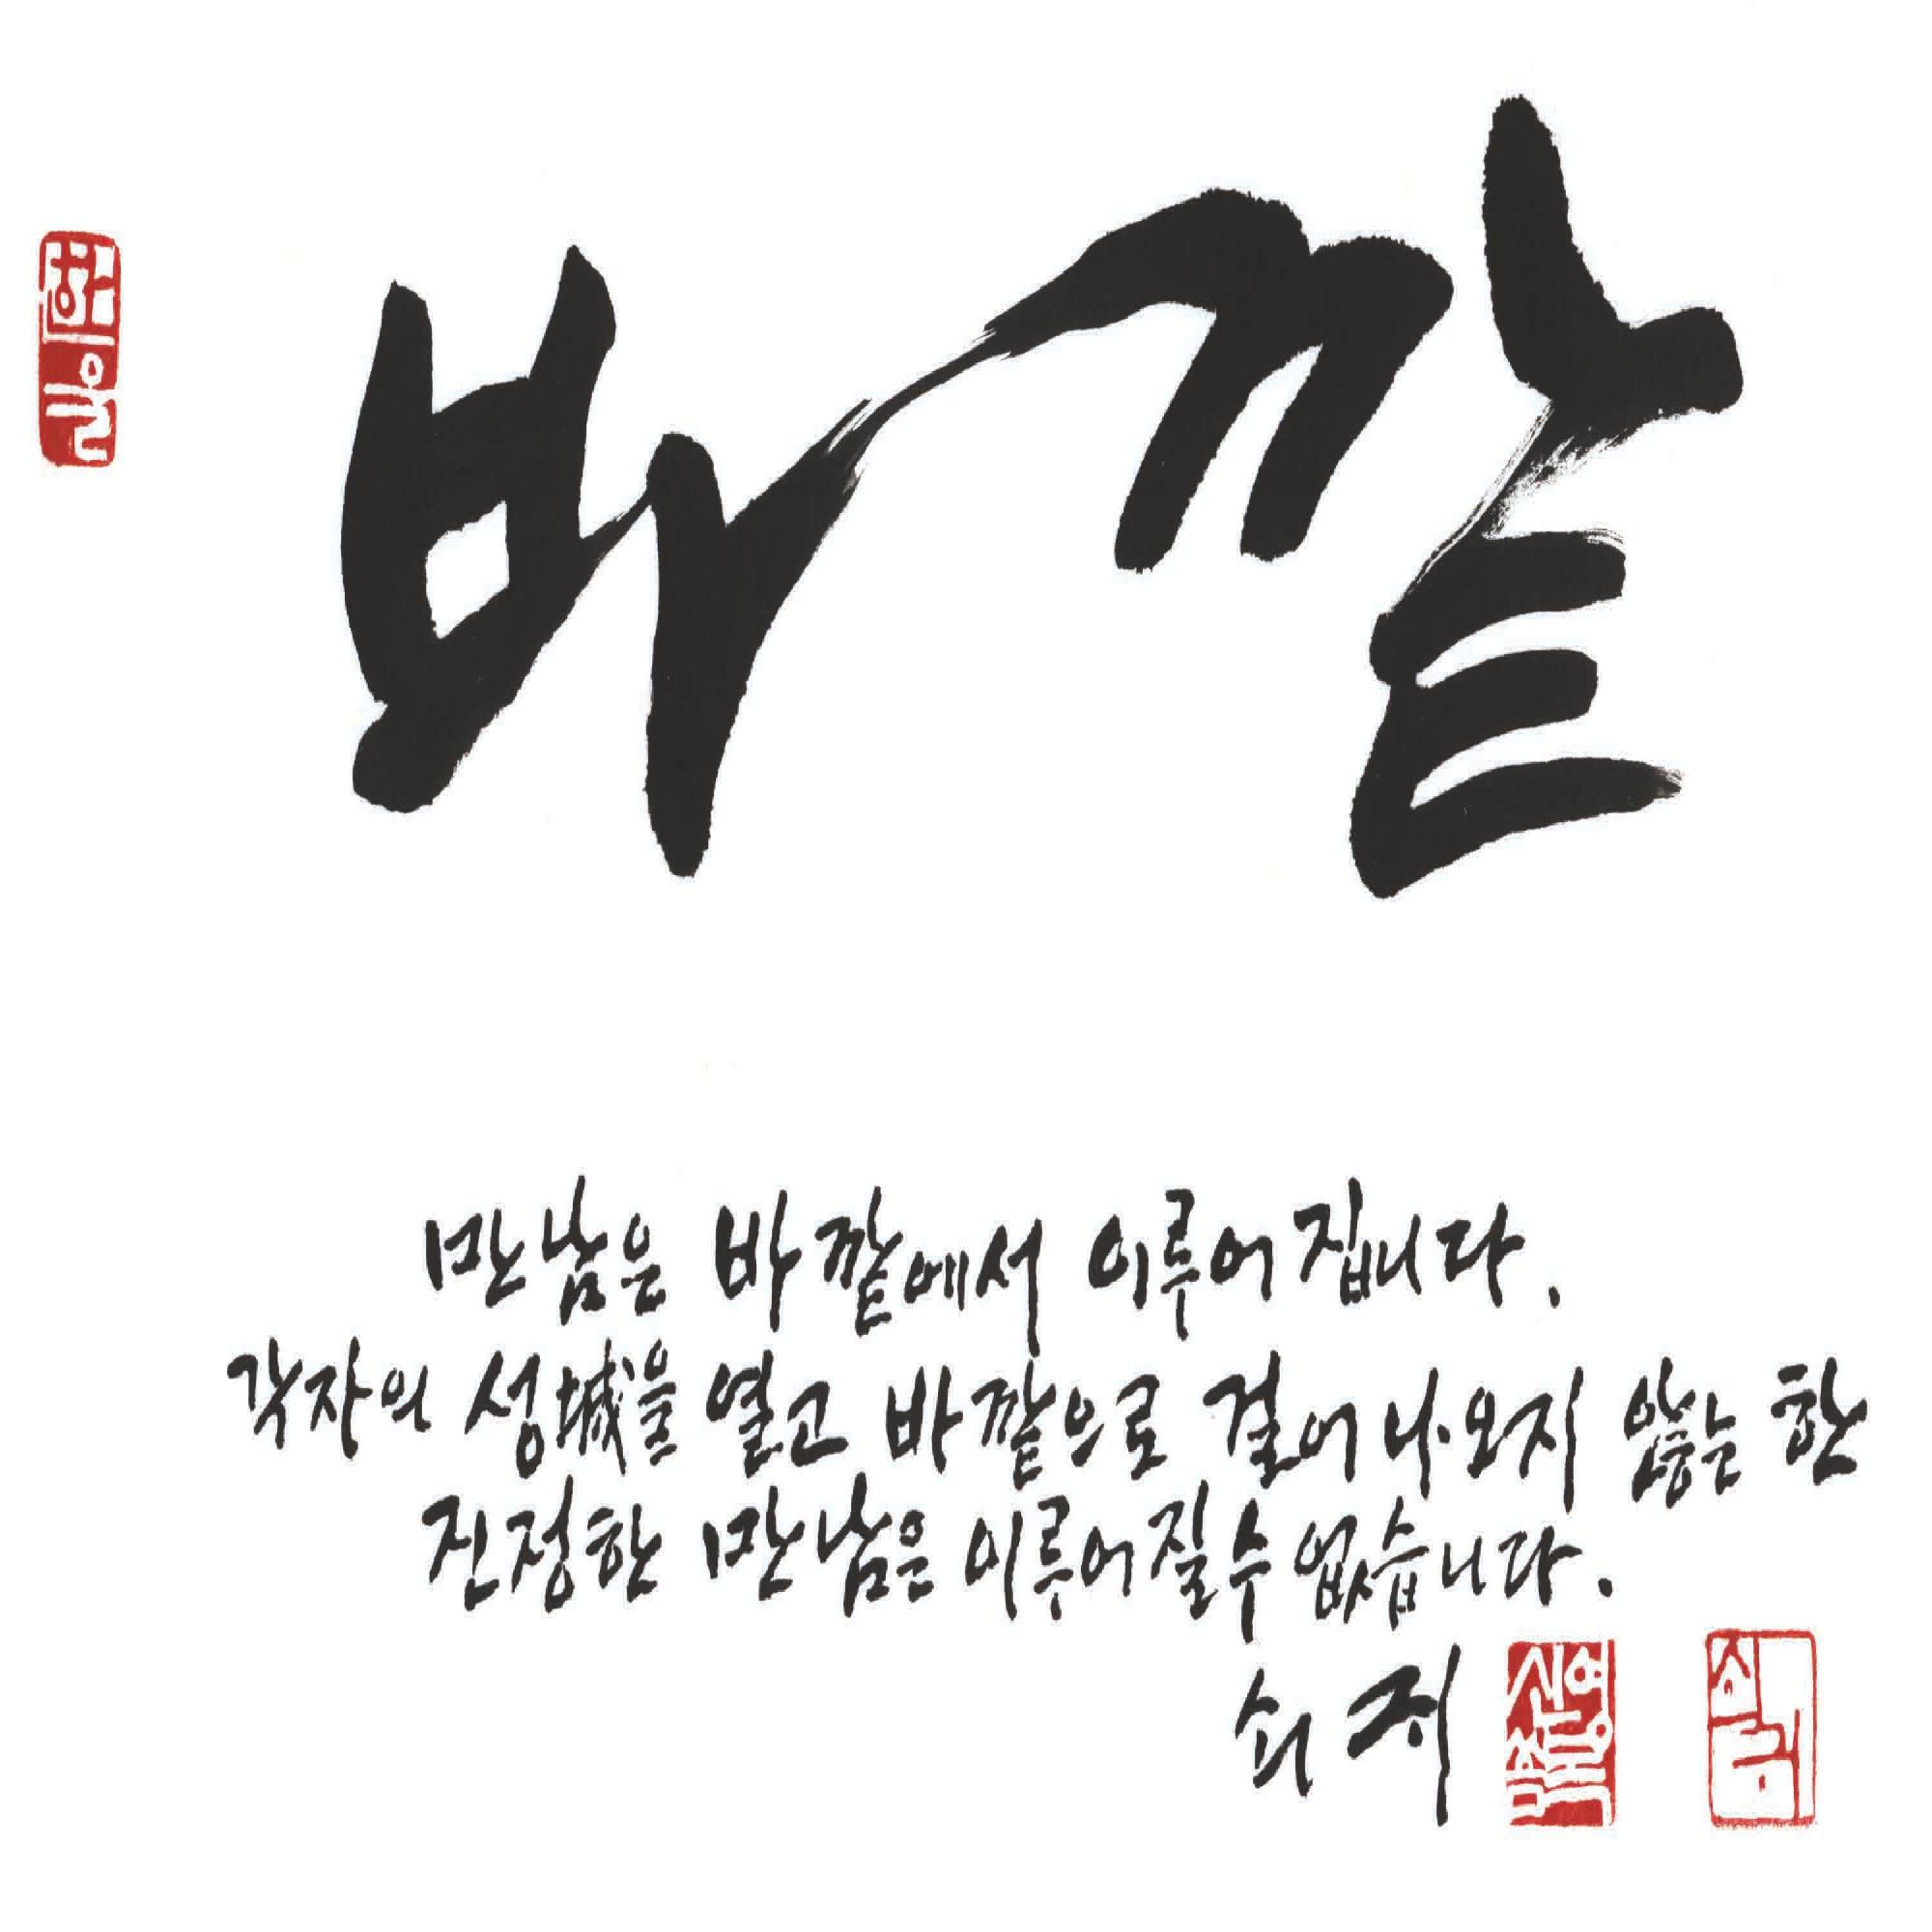 바깥
한울
만남은 바깥에서 이루어집니다.
각자의 성城을 열고 바깥으로 걸어나오지 않는 한
진정한 만남은 이루어질수 없습니다.
쇠귀
신영복
쇠귀